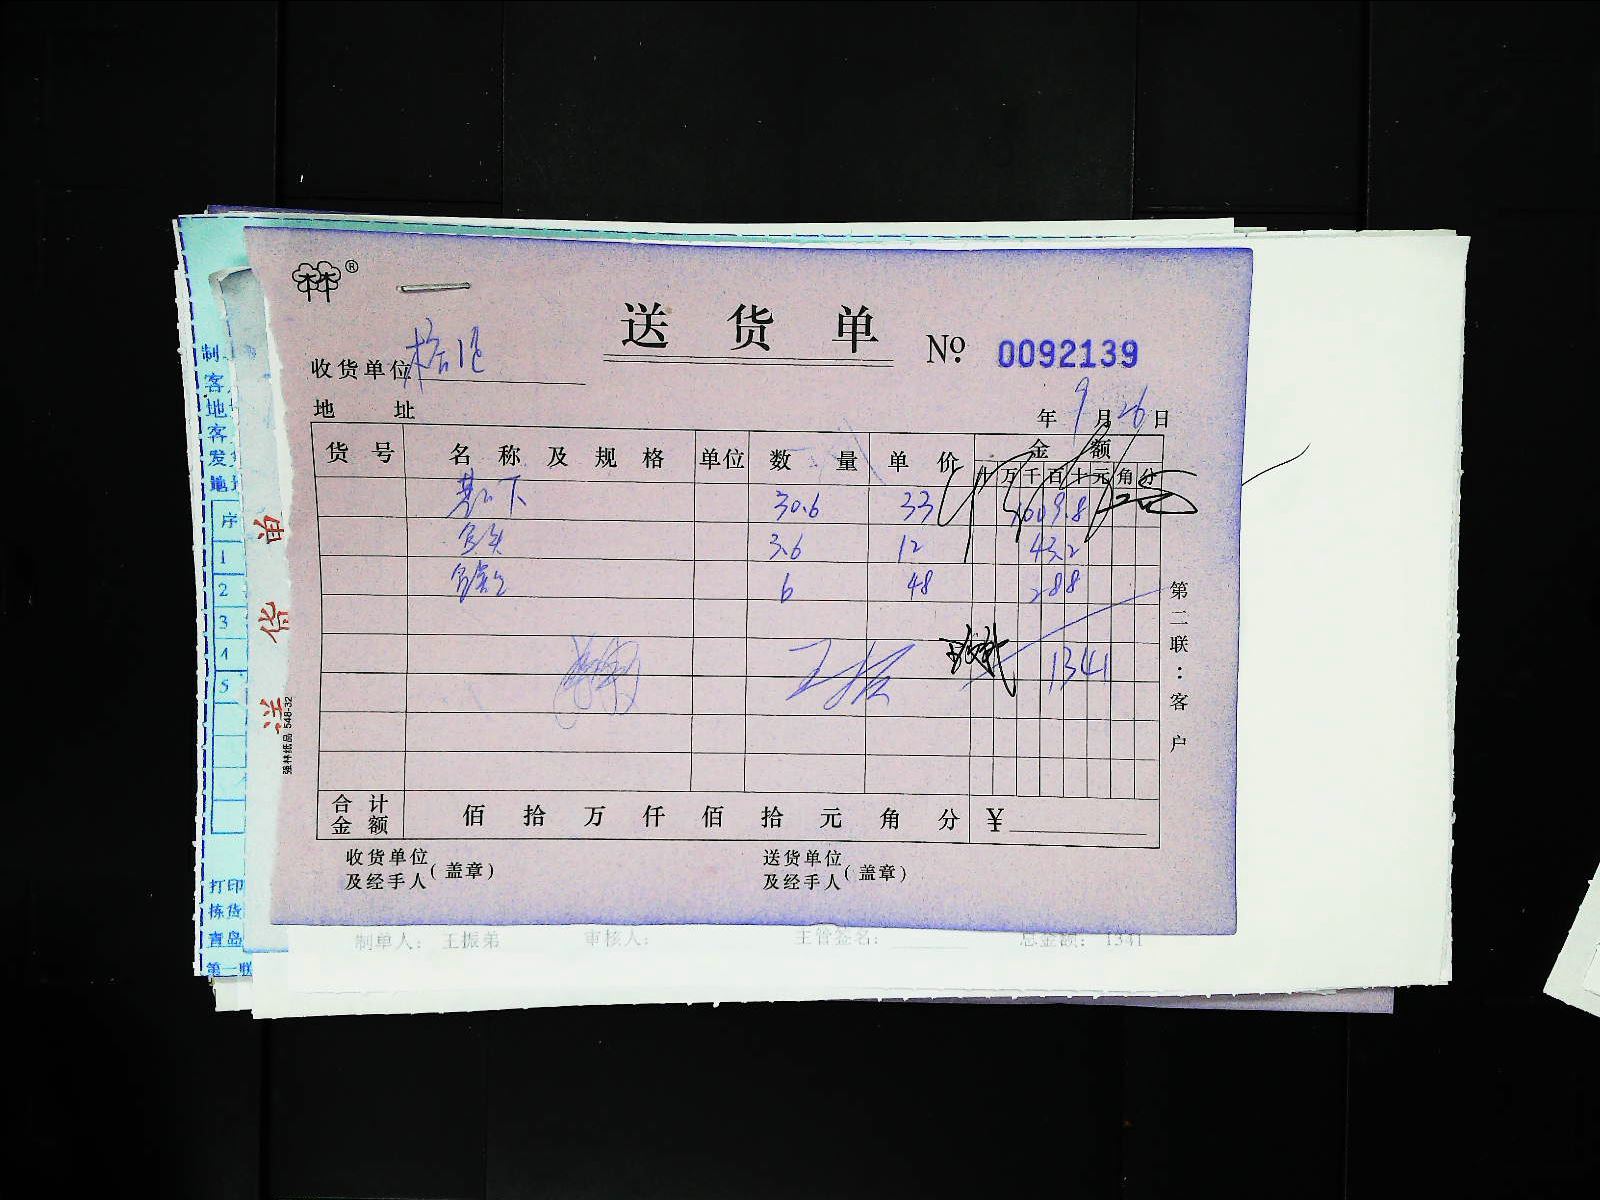 ®
送 货 单
№ 0092139
收货单位
地 址
年 9 月 26 日
货 号 名 称 及 规 格 单位 数 量 单 价 金 额
十 万 千 百 十 元 角 分
30.6 33 1009.8
3.6 12 43.2
6 48 288
1341
合 计 金 额 佰 拾 万 仟 佰 拾 元 角 分 ¥
收货单位及经手人(盖章) 送货单位及经手人(盖章)
第二联：客户
强林纸品 548-32
送 货 单
制
客
地
客
发
地
序
1
2
3
4
5
打印
拣货
青岛
第一联
制单人： 王振弟 审核人： 主管签名： 总金额： 1341